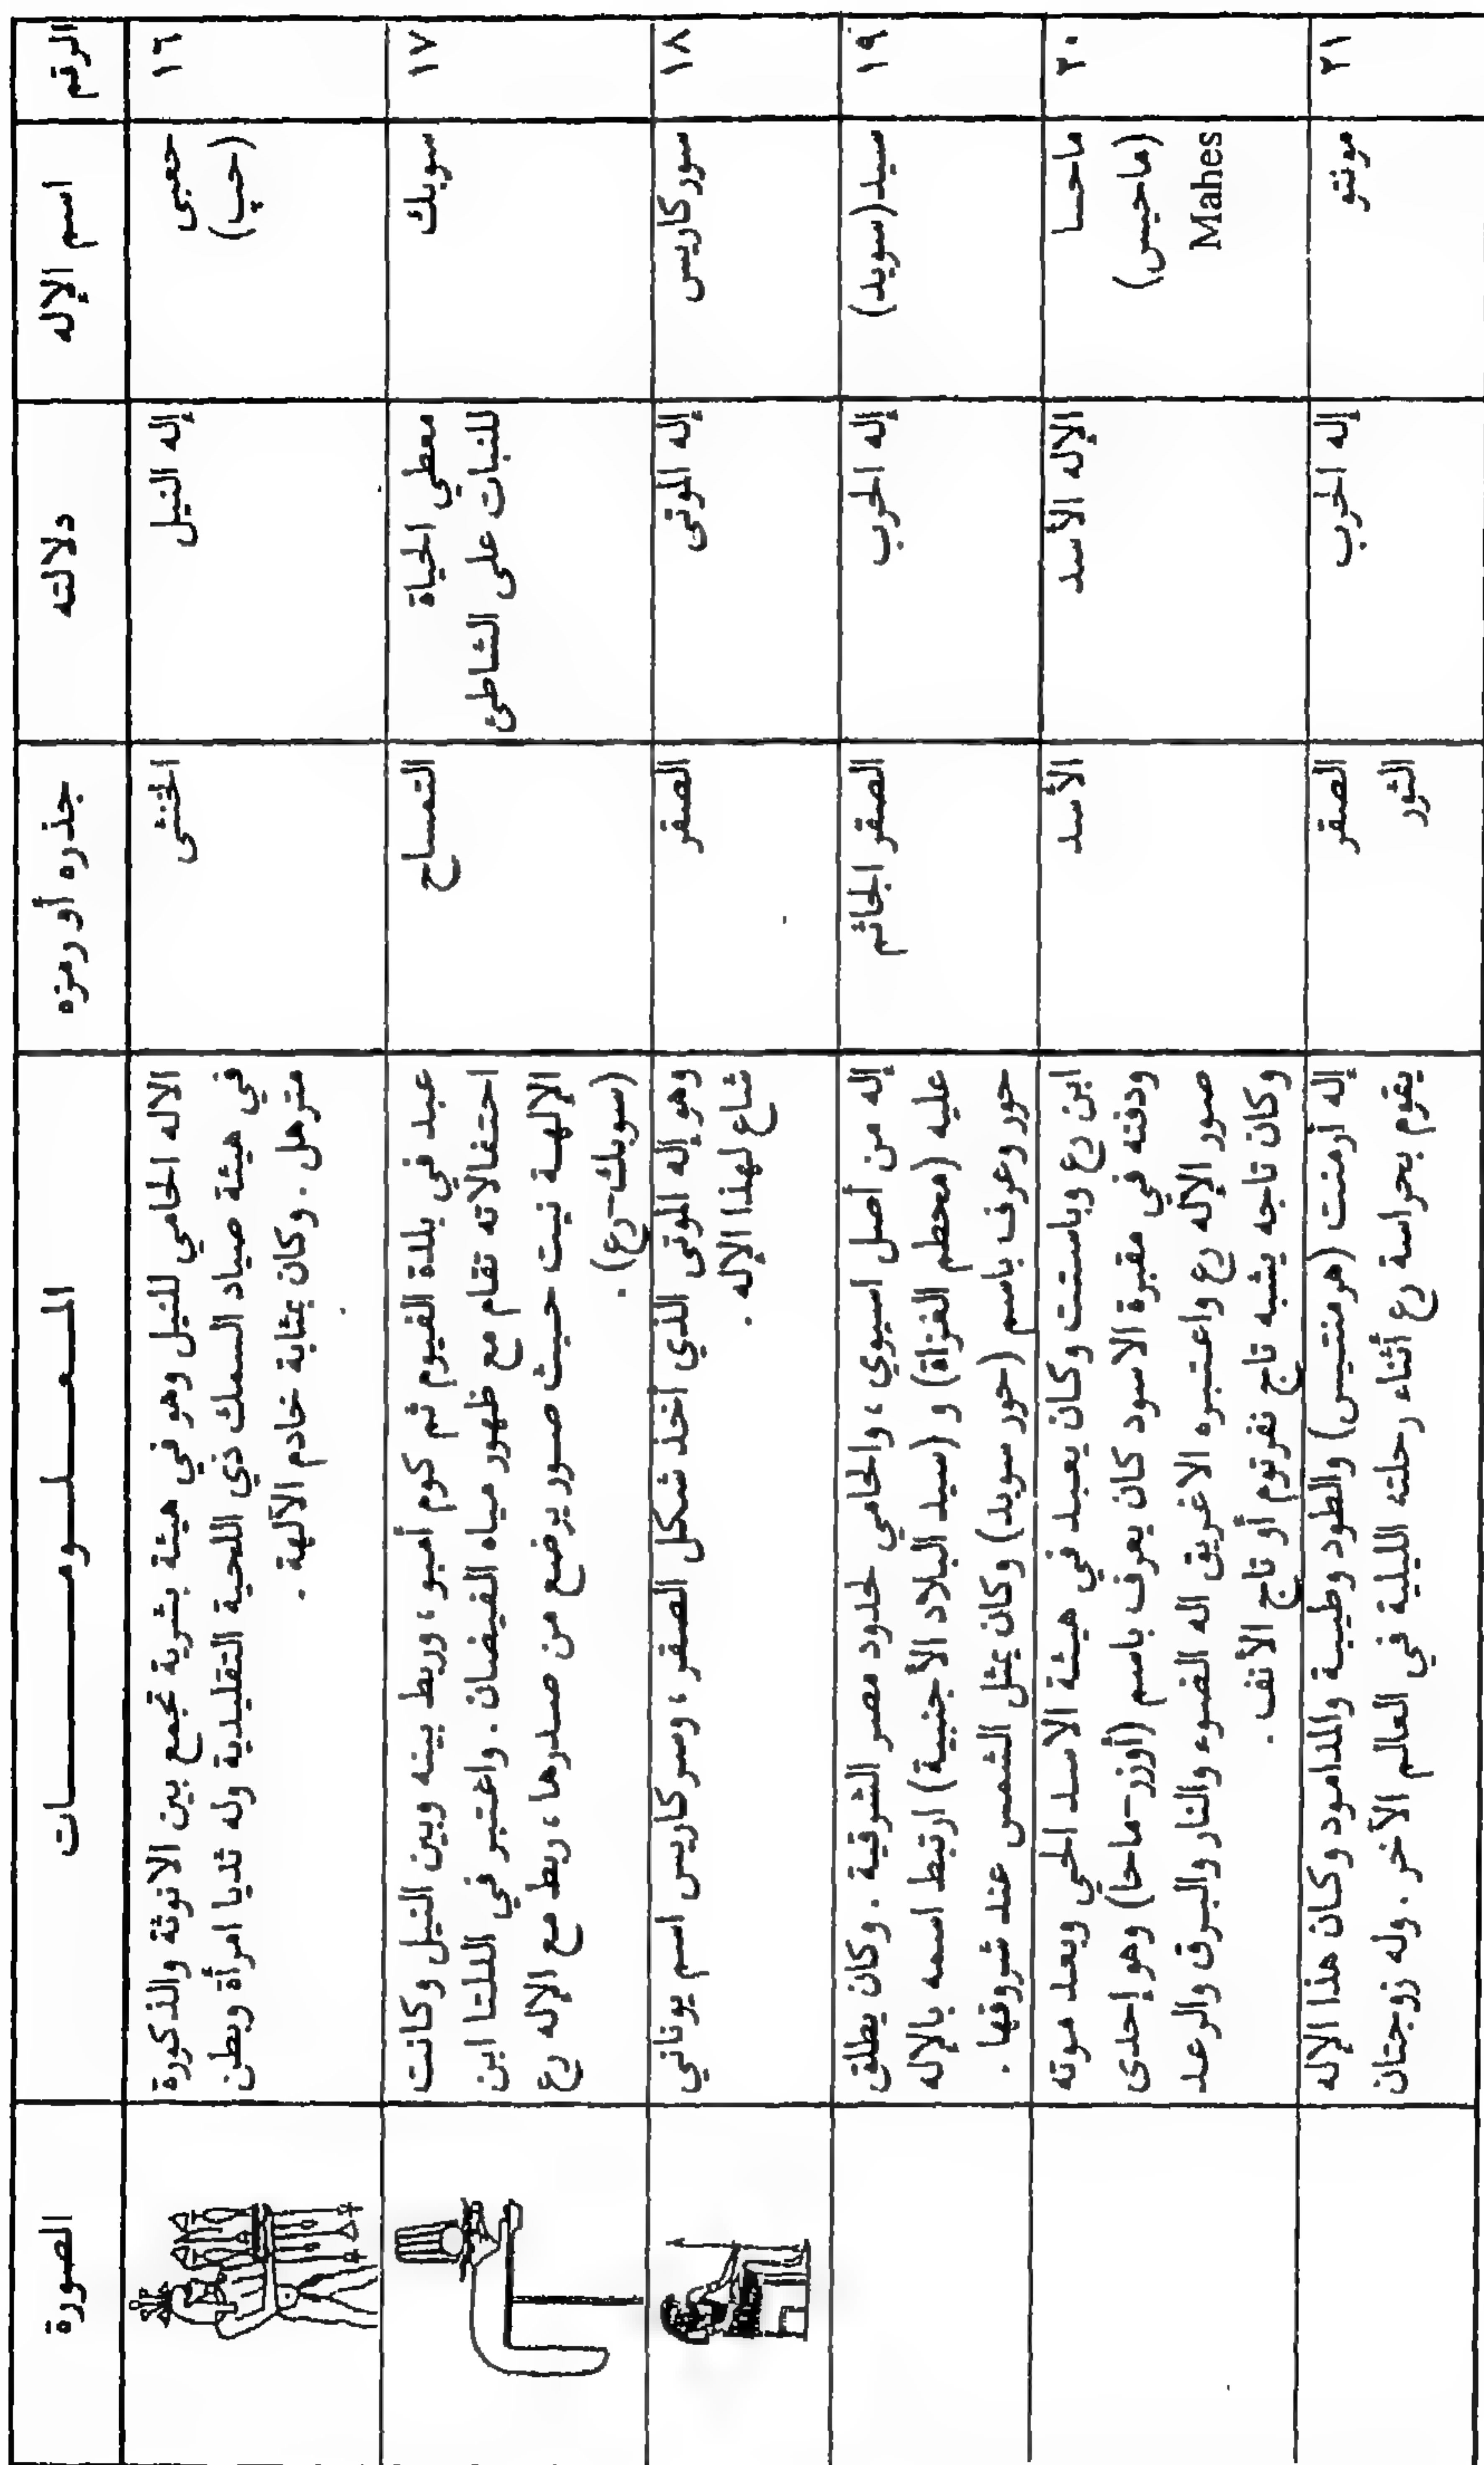 الرقم
اسم الإله
دلالته
جذره أو رمزه
المعلومات
الصورة
١٦
حعبى
(حپ)
إله النيل
الخنثى
الاله الحامي للنيل وهو في هيئة بشرية تجمع بين الانوثة والذكورة
في هيئة صياد السمك ذي اللحية التقليدية وله ثديا امرأة وبطن
مترهل . وكان بمثابة خادم الآلهة .
١٧
سوبك
معطي الحياة
للنبات على الشاطئ
التمساح
عبد في بلدة الفيوم ثم كوم أمبو ، وربط بينه وبين النيل وكانت
احتفالاته تقام مع ظهور مياه الفيضان . واعتبر في الدلتا ابن
الإلهة نيت حيث صور يرضع من صدرها ، ربط مع الإله رع
(سوبك-رع) .
١٨
سوركاريس
إله الموتى
الصقر
وهو إله الموتى الذي أخذ شكل الصقر ، وسركاريس اسم يوناني
شاع لهذا الإله .
١٩
سيد (سوبد)
إله الحرب
الصقر الجاثم
إله من أصل اسيوي ، والحامي لحدود مصر الشرقية . وكان يطلق
عليه (محطم الغزاة) و (سيد البلاد الأجنبية) ارتبط اسمه بالإله
حور وعرف باسم (حور سوبد) وكان يمثل الشمس عند شروقها .
٢٠
ماحسا
(ماحيس)
Mahes
الإله الأسد
الأسد
ابن رع وباستت وكان يعبد في هيئة الاسد الحي وبعد موته
ودفنه في مقبرة الاسود كان يعرف باسم (أوزر-ماحا) وهو إحدى
صور الإله رع واعتبره الاغريق اله الضوء والنار والبرق والرعد
وكان تاجه يشبه تاج نفرتوم أو تاج الأنف .
٢١
مونتو
إله الحرب
الصقر
الثور
إله أرمنت (هرمنتيس) والطود وطيبة والمدامود وكان هذا الإله
يقوم بحراسة رع أثناء رحلته الليلية في العالم الآخر . وله زوجتان